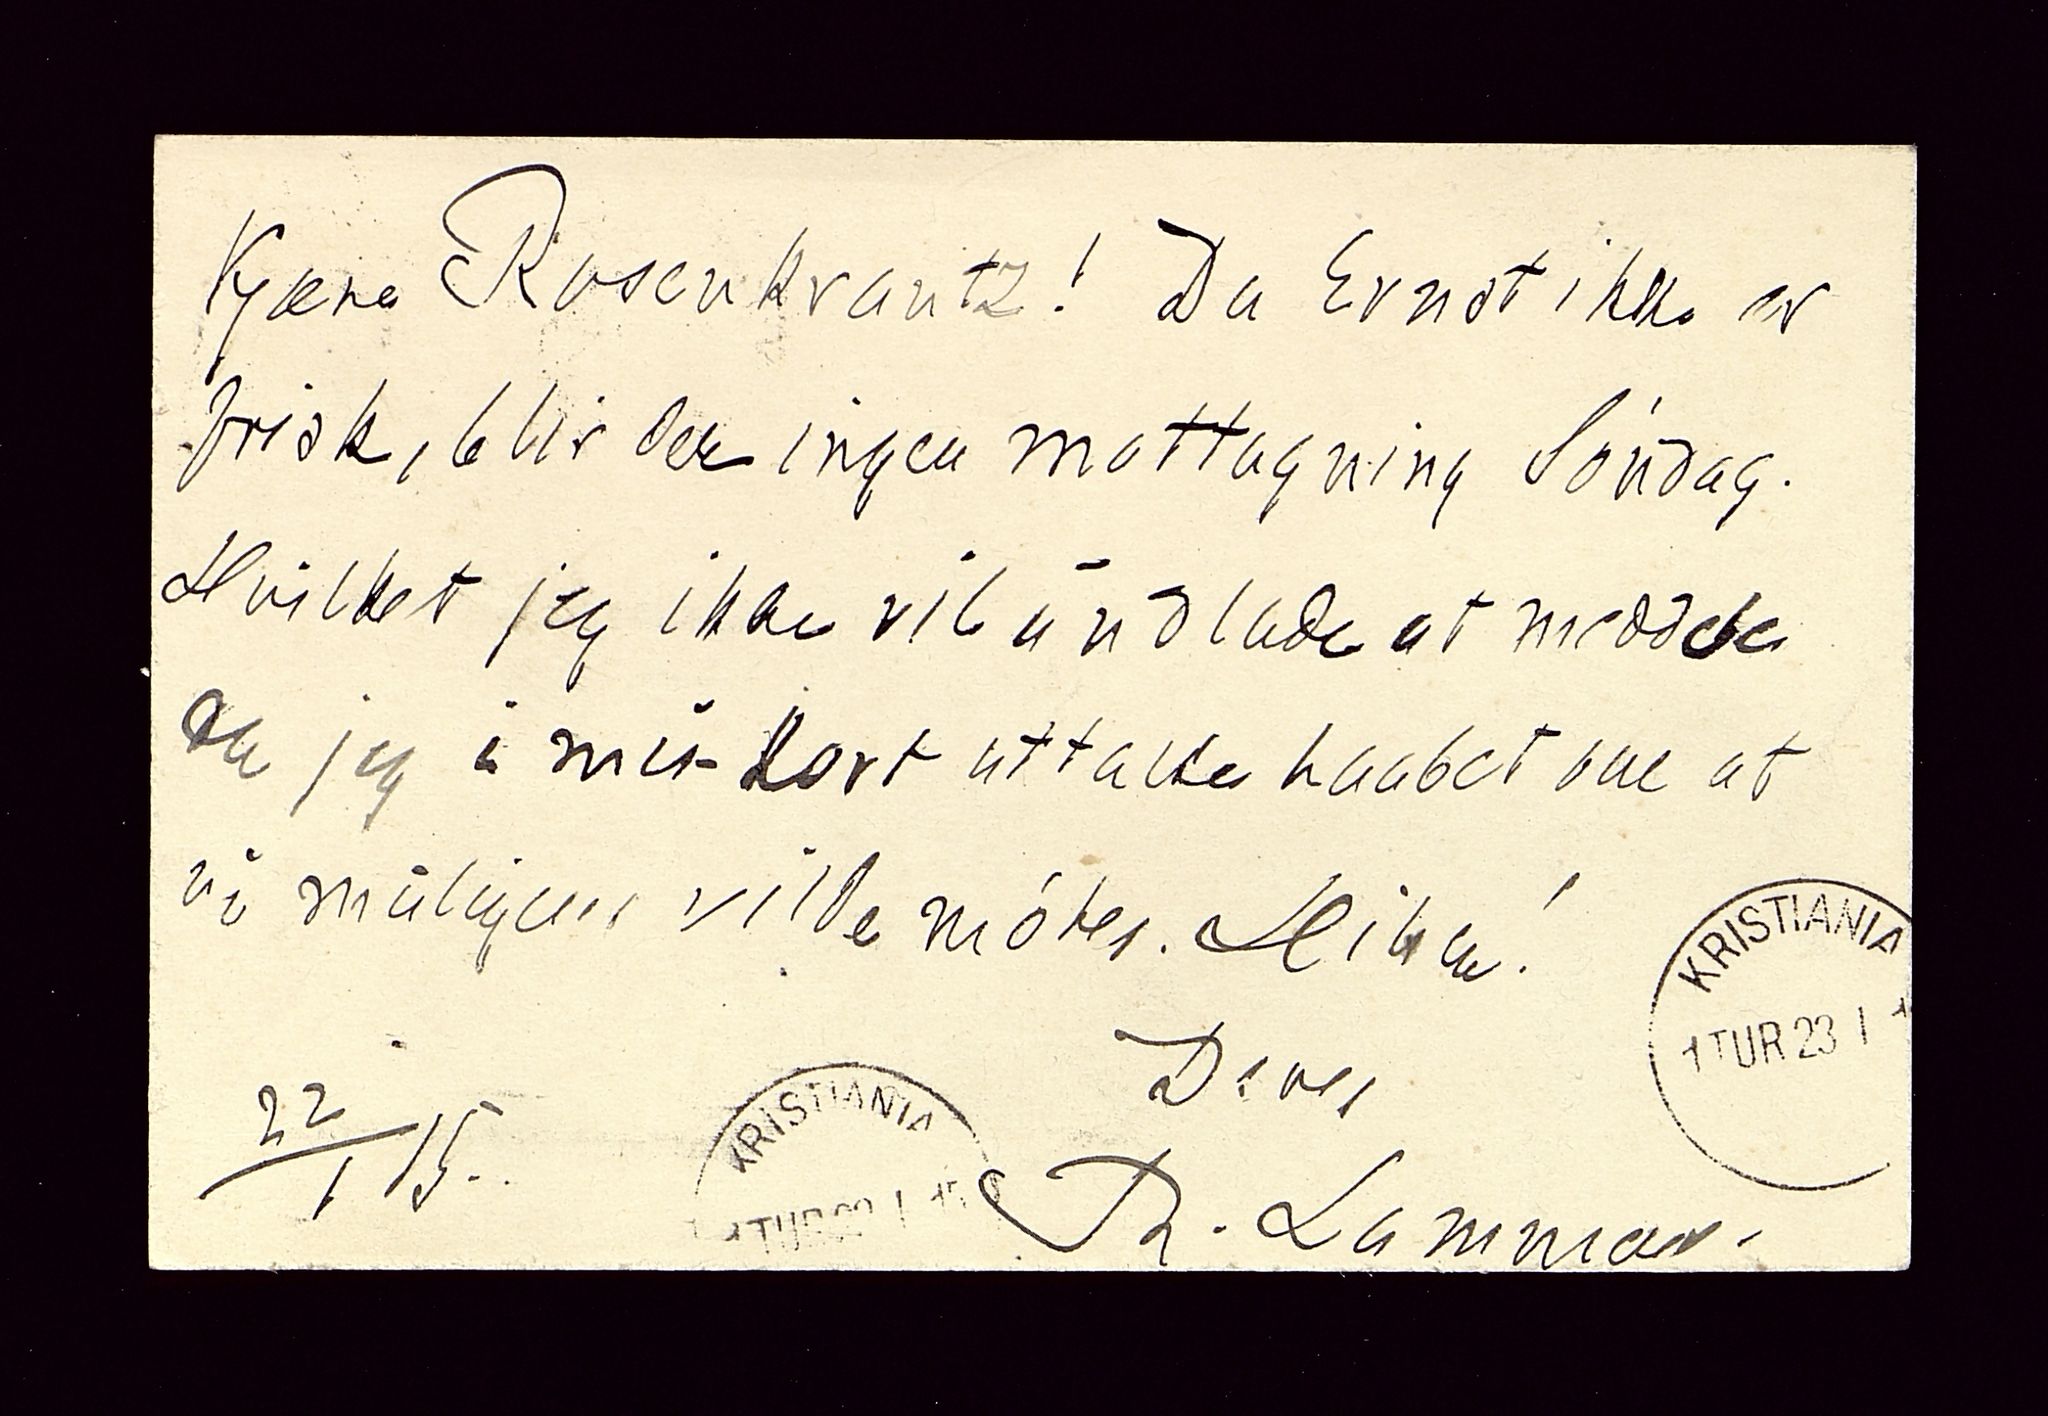 Kjære Rosenkrantz! Da Ernst ikke er
frisk, blir der ingen mottagning Söndag.
Hvilket jeg ikke vil undlade at meddele
da jeg i mit kort uttalte haabet om at
vi muligens vilde mötes. Hilsen!
Deres
Th. Lammers.
22/1 15.
KRISTIANIA
1 TUR 23 I 1
KRISTIANIA
TUR 23 I 15